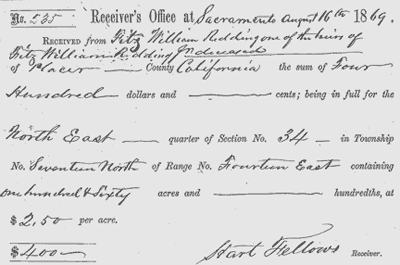 No. 535 Receiver's Office at Sacramento August 16th 1869.
RECEIVED FROM Fitz William Redding one of the heirs of
Fitz William Redding deceased
of Placer — County California the sum of Four
Hundred dollars and — cents; being in full for the
North East — quarter of Section No. 34 — in Township
No. Seventeen North of Range No. Fourteen East containing
One hundred & Sixty acres and — hundredths, at
$ 2,50 per acre.
$ 400— Hart Fellows Receiver.